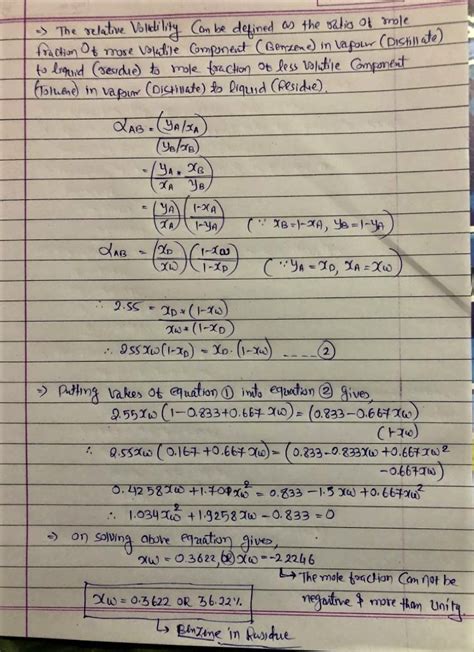 ⇒ The relative Volitility Can be defined as the ratio of mole
fraction of more volatile Component (Benzene) in vapour (Distillate)
to liquid (residue) to mole fraction of less volatile Component
(Toluene) in vapour (Distillate) to liquid (Residue).
α_AB = (y_A/x_A) / (y_B/x_B)
= (y_A/x_A * x_B/y_B)
= (y_A/x_A) (1-x_A/1-y_A) (∵ x_B=1-x_A, y_B=1-y_A)
α_AB = (x_D/x_W) (1-x_W/1-x_D) (∵ y_A = x_D, x_A = x_W)
∴ 2.55 = x_D * (1-x_W) / x_W * (1-x_D)
∴ 2.55 x_W (1-x_D) = x_D . (1-x_W) ---- ②
⇒ Putting Values of equation ① into equation ② gives,
2.55 x_W (1-0.833+0.667 x_W) = (0.833-0.667 x_W)
(1-x_W)
∴ 2.55 x_W (0.167+0.667 x_W) = (0.833-0.833 x_W+0.667 x_W²
-0.667 x_W)
0.4258 x_W + 1.701 x_W² = 0.833 - 1.5 x_W + 0.667 x_W²
∴ 1.034 x_W² + 1.9258 x_W - 0.833 = 0
⇒ on solving above equation gives,
x_W = 0.3622, OR x_W = -2.2246
↳ The mole fraction Can not be
negative & more than Unity
x_W = 0.3622 OR 36.22%
↳ Benzene in Residue